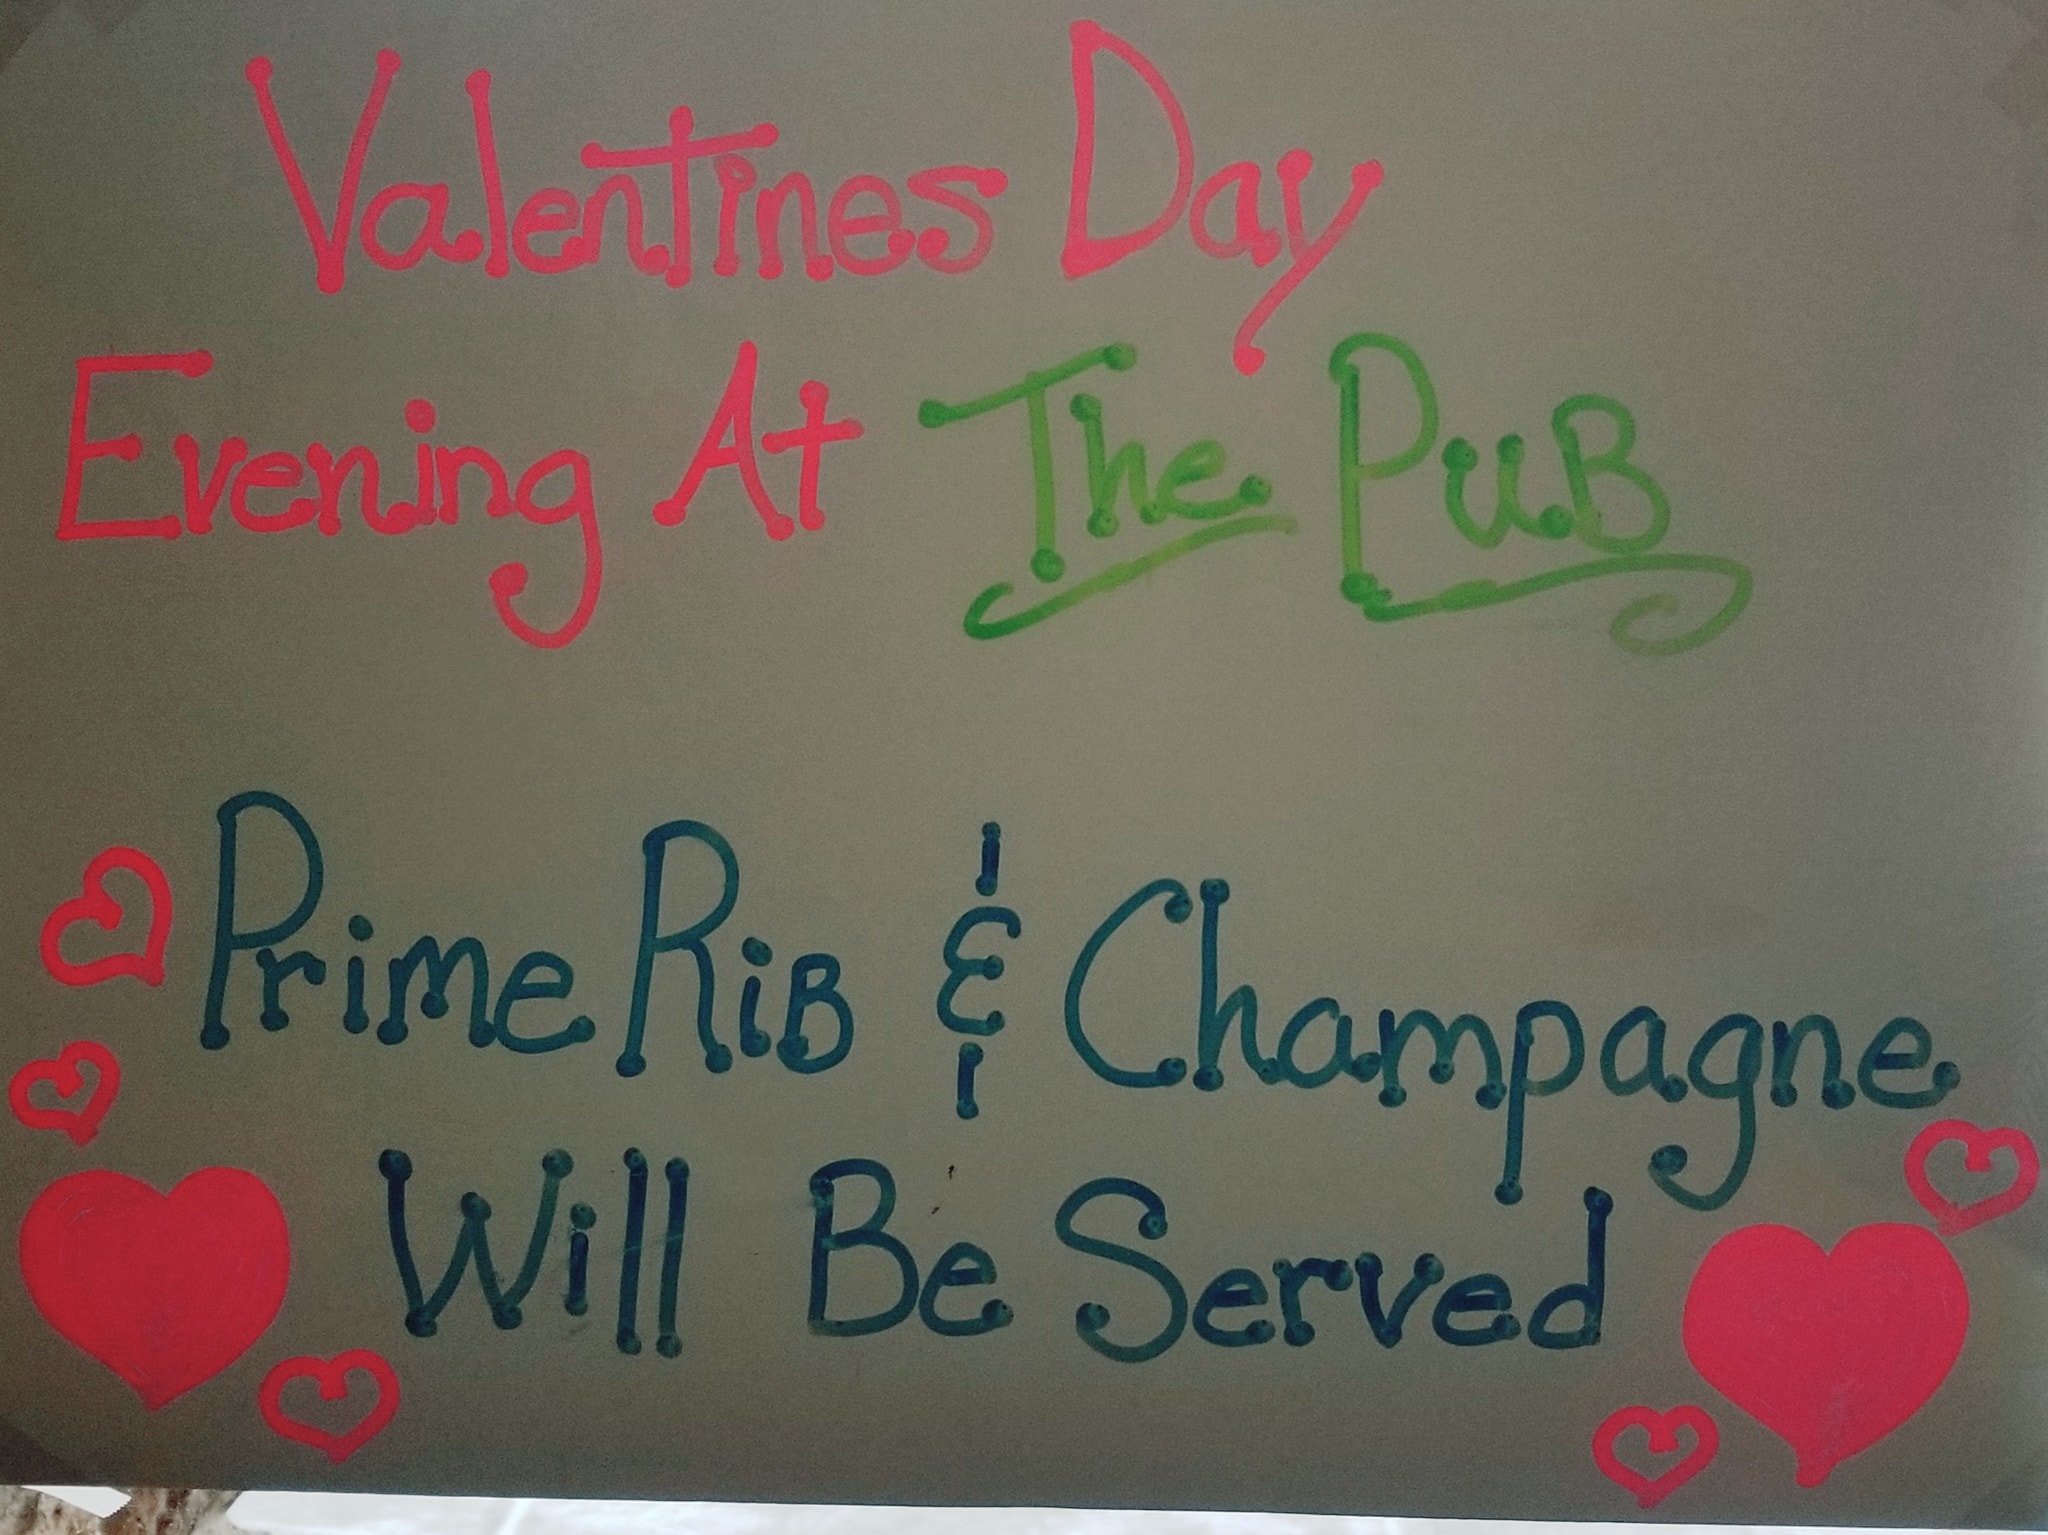 Valentines Day
Evening At The PuB
Prime RiB & Champagne
Will Be Served